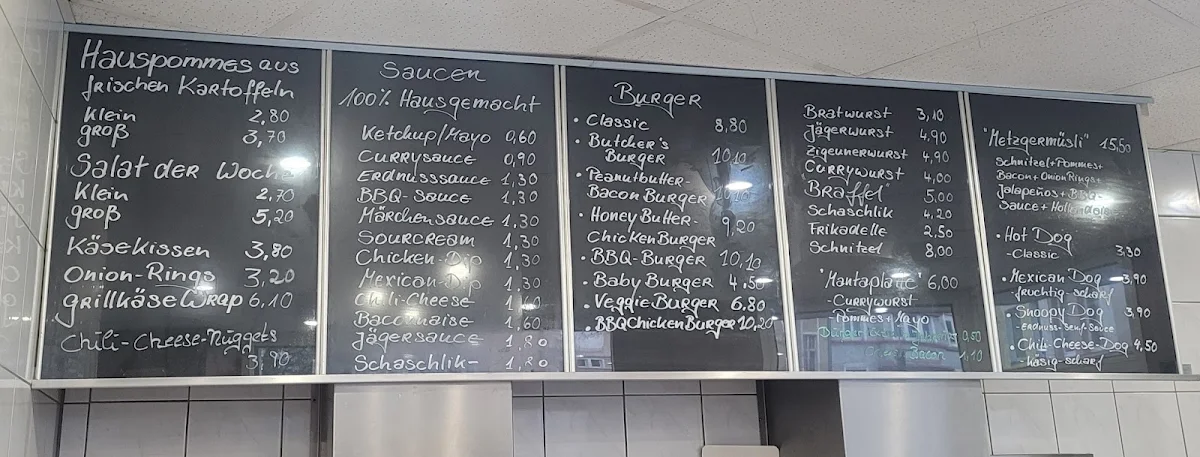 Hauspommes aus
frischen Kartoffeln
Klein 2,80
groß 3,70
Salat der Woche
Klein 2,70
groß 5,20
Käsekissen 3,80
Onion-Rings 3,20
grillkäse Wrap 6,10
Chili-Cheese-Nuggets
3,90
Saucen
100% Hausgemacht
Ketchup/Mayo 0,60
Currysauce 0,90
Erdnusssauce 1,30
BBQ-Sauce 1,30
Märchensauce 1,30
Sourcream 1,30
Chicken-Dip 1,30
Mexican-Dip 1,30
Chili-Cheese
Baconnaise 1,60
Jägersauce 1,80
Schaschlik- 1,80
Burger
• Classic 8,80
• Butcher's
Burger 10,10
• Peanutbutter-
Bacon Burger
• Honey Butter- 9,20
Chicken Burger
• BBQ-Burger 10,10
• Baby Burger 4,50
• Veggie Burger 6,80
• BBQ Chicken Burger 10,20
Bratwurst 3,10
Jägerwurst 4,90
Zigeunerwurst 4,90
Currywurst 4,00
"Bräffel" 5,00
Schaschlik 4,20
Frikadelle 2,50
Schnitzel 8,00
"Mantaplatte" 6,00
-Currywurst
Pommes + Mayo
0,50
Bacon 1,10
"Metzgermüsli" 15,50
Schnitzel + Pommes +
Bacon + Onion Rings +
Jalapeños + BBQ-
Sauce +
• Hot Dog
-Classic 3,30
• Mexican Dog 3,90
fruchtig-scharf
• Snoopy Dog 3,90
-Erdnuss-Senf-Sauce
• Chili-Cheese-Dog 4,50
-käsig-scharf